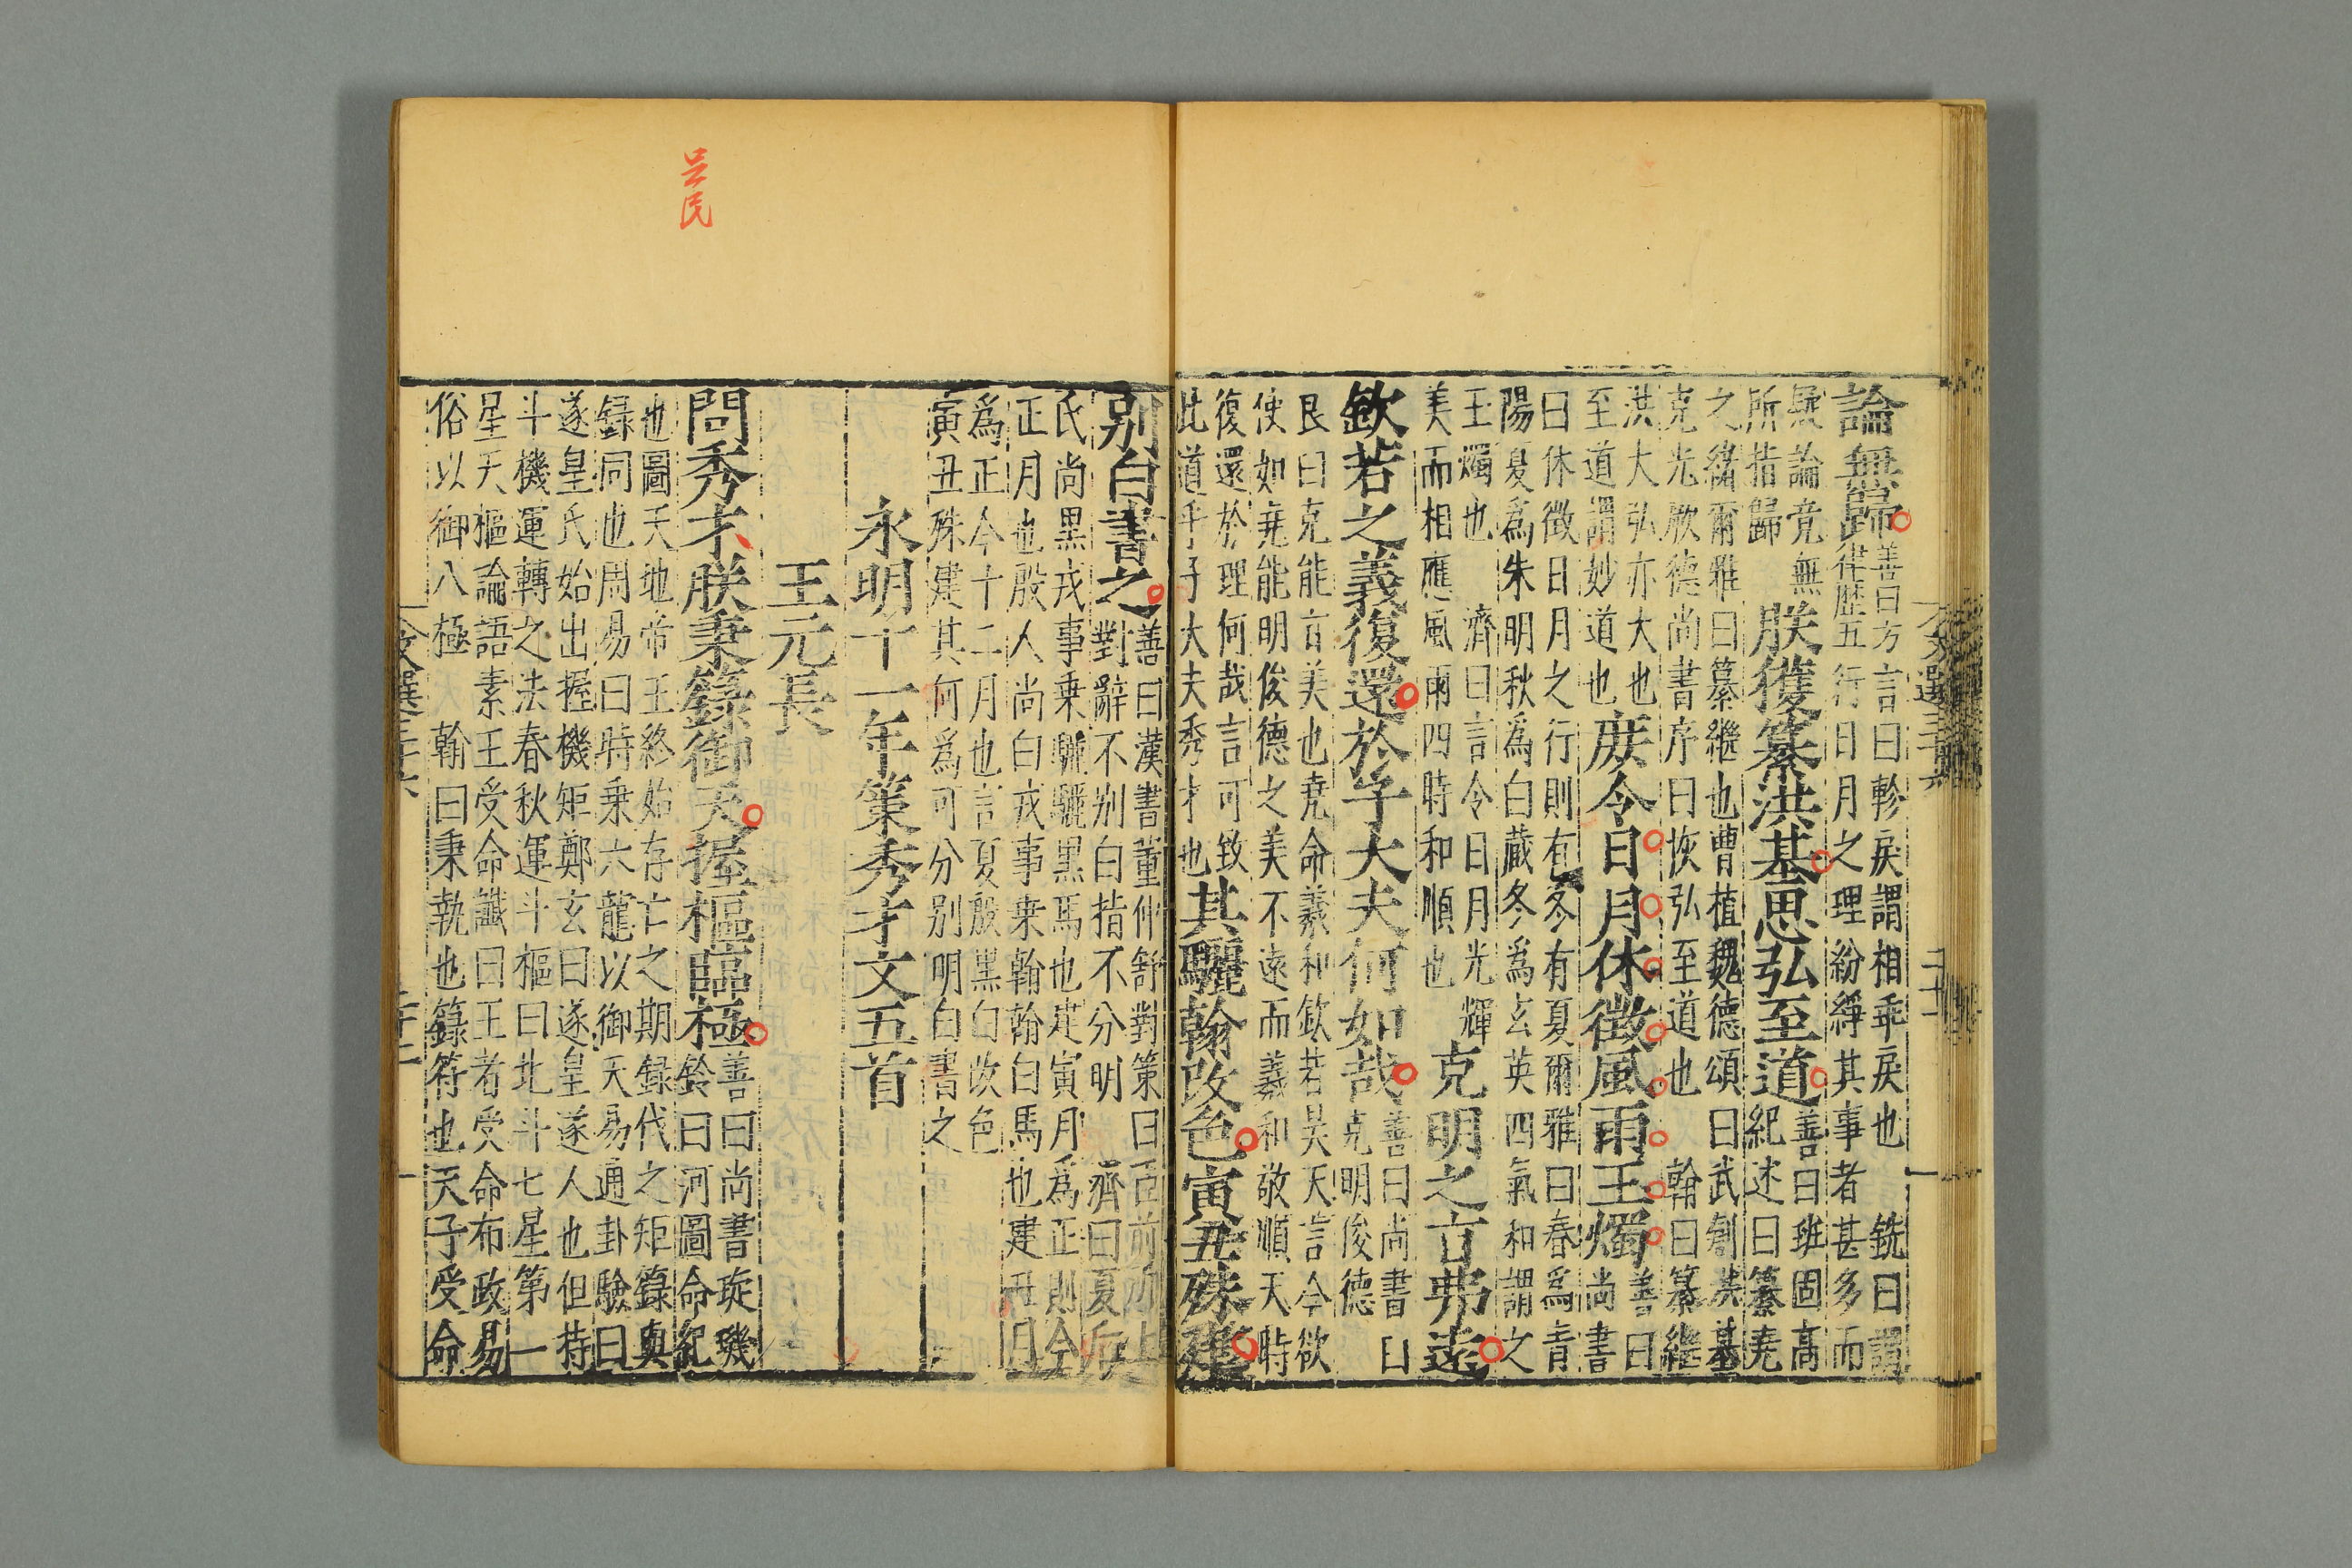 論無歸善曰方言曰軫戾謂相乖戾也銑曰謂
律歴五行日月之理紛綸其事者甚多而
歷論竟無
所指歸
朕獲纂洪基思弘至道善曰班固髙
紀述曰纂堯
之緒爾雅曰纂繼也曹植魏德頌曰武創洪基
克光厥德尚書序曰恢弘至道也翰曰纂繼
洪大弘亦大也
至道謂妙道也
庻令日月休徴風雨王燭善曰
尚書
曰休徴日月之行則有冬有夏爾雅曰春爲青
陽夏爲朱明秋爲白藏冬爲玄英四氣和謂之
玉燭也濟曰言令日月光輝
美而相應風雨四時和順也
克明之言弗逺
欽若之義復還於子大夫何如哉善曰尚書曰
克明俊德
艮曰克能言美也堯命羲和欽若昊天言今欲
使如堯能明俊德之美不逺而羲和敬順天時
復還於理何哉言可致
此道乎子大夫秀才也
其驪翰改色寅丑殊建
別白書之善曰漢書董仲舒對策曰臣前所上
對辭不別白指不分明濟曰夏后
氏尚黒戎事乗驪驪黒馬也建寅月爲正則今
正月也殷人尚白戎事乗翰翰白馬也建丑月
爲正今十二月也言夏殷黒白改色
寅丑殊建其何爲可分別明白書之
永明十一年策秀才文五首
王元長
問秀才朕秉籙御天握樞臨極善曰尚書琁璣
鈴曰河圖命紀
也圖天地帝王終始存亡之期録代之矩籙與
録同也周易曰時乗六龍以御天易通卦驗曰
遂皇氏始出握機矩鄭玄曰遂皇遂人也但持
斗機運轉之法春秋運斗樞曰北斗七星第一
星天樞論語素王受命讖曰王者受命布政易
俗以御八極翰曰秉執也籙符也天子受命